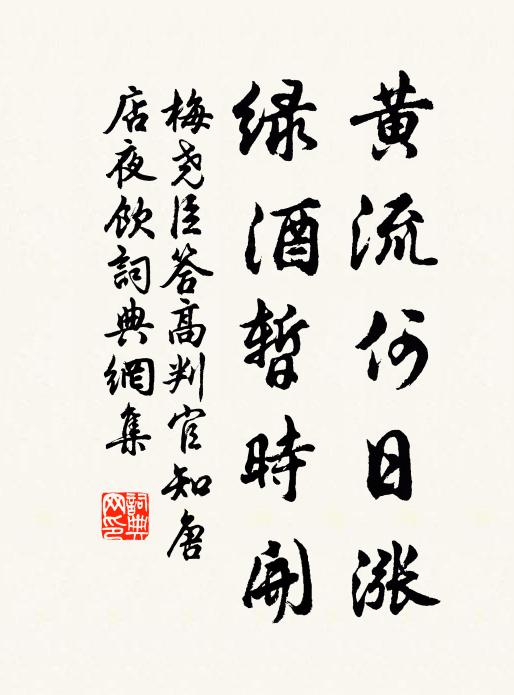 黃流何日漲
綠酒暫時開
梅堯臣答高判官知唐
店夜飲詞典網集
詞典
网印